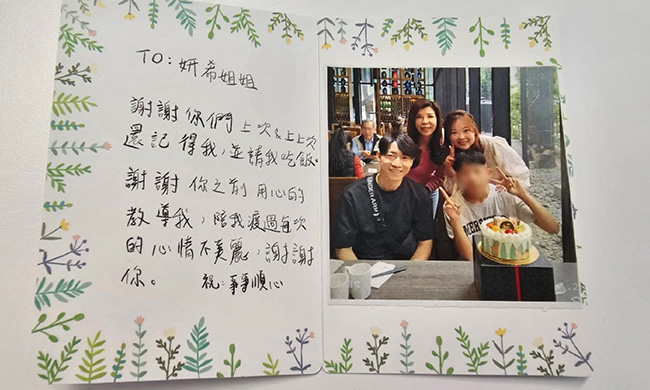 TO：妍希姐姐
謝謝你們上次&上上次
還記得我，並請我吃飯。
謝謝你之前用心的
教導我，陪我渡過每次
的心情不美麗，謝謝
你。　祝：事事順心
UNDER ARM
MERC